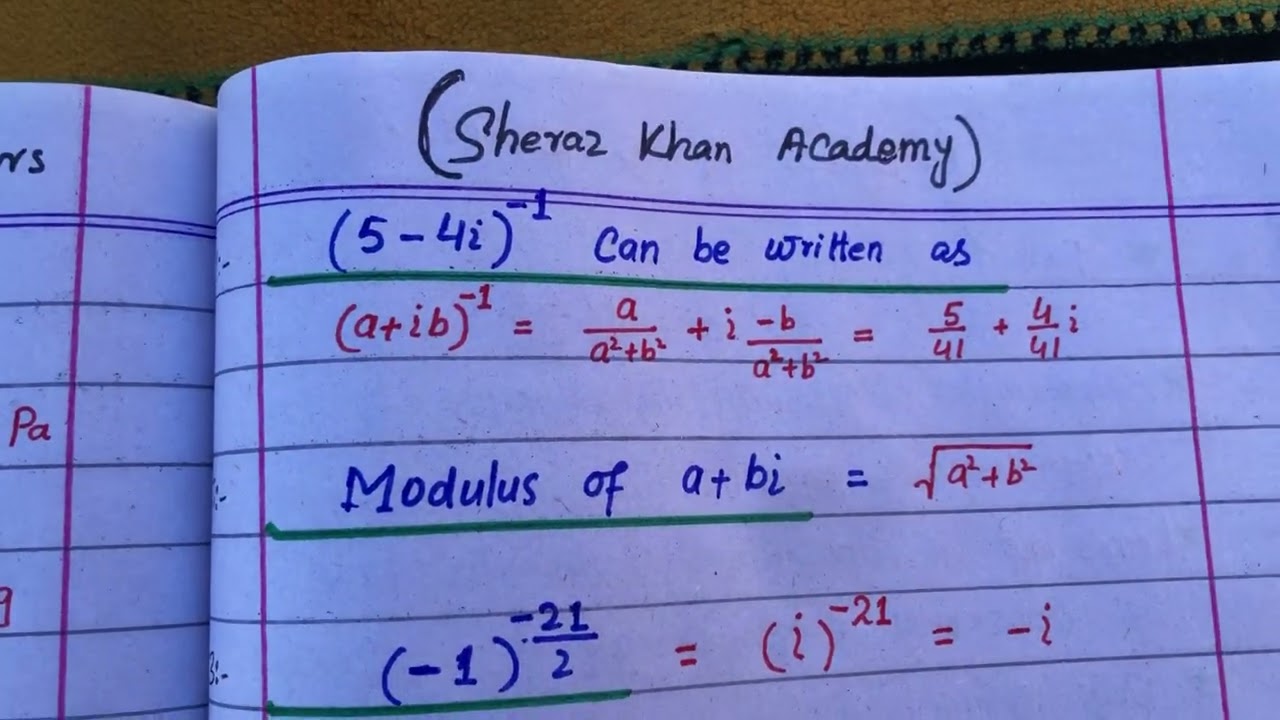 (Sheraz Khan Academy)
(5-4i)⁻¹ Can be written as
(a+ib)⁻¹ = a/(a²+b²) + i -b/(a²+b²) = 5/41 + 4/41 i
Pa
Modulus of a+bi = √(a²+b²)
3:- (-1)^(-21/2) = (i)⁻²¹ = -i